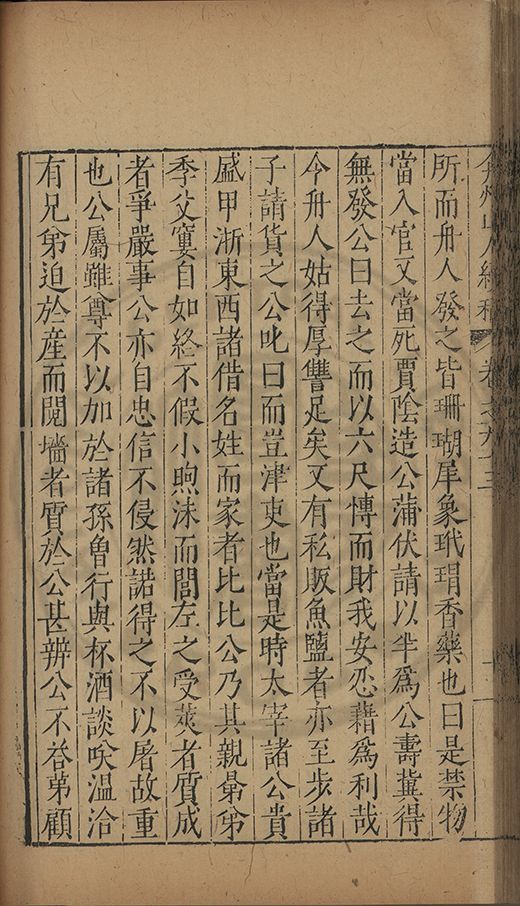 弇州山人續稿 卷之九十三
所而舟人發之皆珊瑚犀象玳瑁香藥也曰是禁物
當入官又當死賈陰造公蒲伏請以半爲公壽冀得
無發公曰去之而以六尺慱而財我安忍藉爲利哉
今舟人姑得厚讐足矣又有私販魚鹽者亦至步諸
子請貨之公叱曰而豈津吏也當是時太宰諸公貴
盛甲浙東西諸借名姓而家者比比公乃其親㬎弟
季父窶自如終不假小煦沫而閭左之受莢者質成
者爭嚴事公亦自忠信不侵然諾得之不以屠故重
也公屬雖尊不以加於諸孫曾行與杯酒談笑溫洽
有兄弟迫於産而鬩墻者質於公甚辨公不答第顧